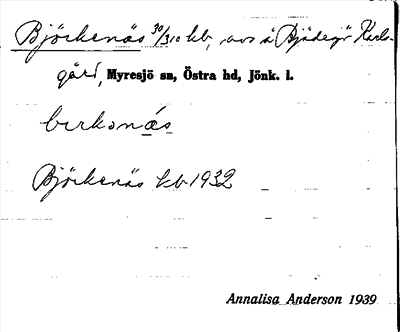 Björkenäs 30/310 kb, avs å Bjädesjö Karls-
gård, Myresjö sn, Östra hd, Jönk. l.
birkonǽs
Björkenäs kb 1932
Annalisa Anderson 1939